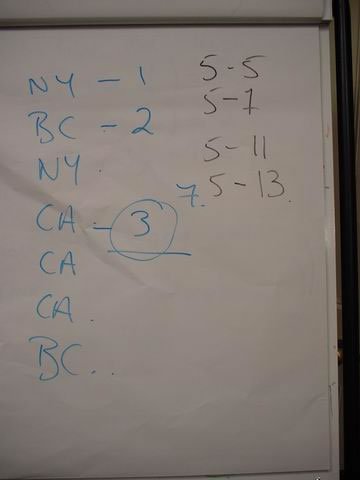 NY - 1
BC - 2
NY.
CA - 3
CA
CA.
BC..
5-5
5-7
5-11
7. 5-13.